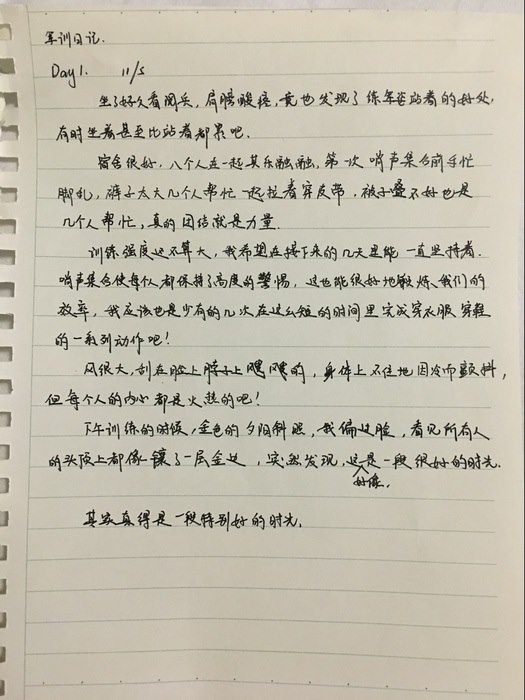 军训日记.
Day1. 11/5
坐了好久看阅兵，肩膀酸疼，竟也发现了练军姿站着的好处，
有时坐着甚至比站着都累吧.
宿舍很好，八个人在一起其乐融融，第一次哨声集合前手忙
脚乱，裤子太大几个人帮忙一起拉着穿皮带，被子叠不好也是
几个人帮忙，真的团结就是力量.
训练强度还不算大，我希望在接下来的几天里能一直坚持着.
哨声集合使每个人都保持了高度的警惕，这也能很好地锻炼我们的
效率，我应该也是少有的几次在这么短的时间里完成穿衣服穿鞋
的一系列动作吧！
风很大，刮在脸上脖子上飕飕的，身体上不住地因冷而颤抖，
但每个人的内心都是火热的吧！
下午训练的时候，金色的夕阳斜照，我偏过脸，看见所有人
的头顶上都像镶了一层金边，突然发现，这好像是一段很好的时光.
其实真得是一段特别好的时光.